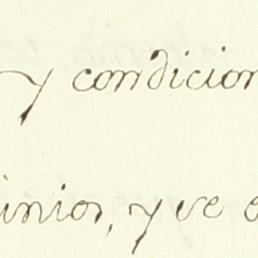 y condicion
inios, y ve